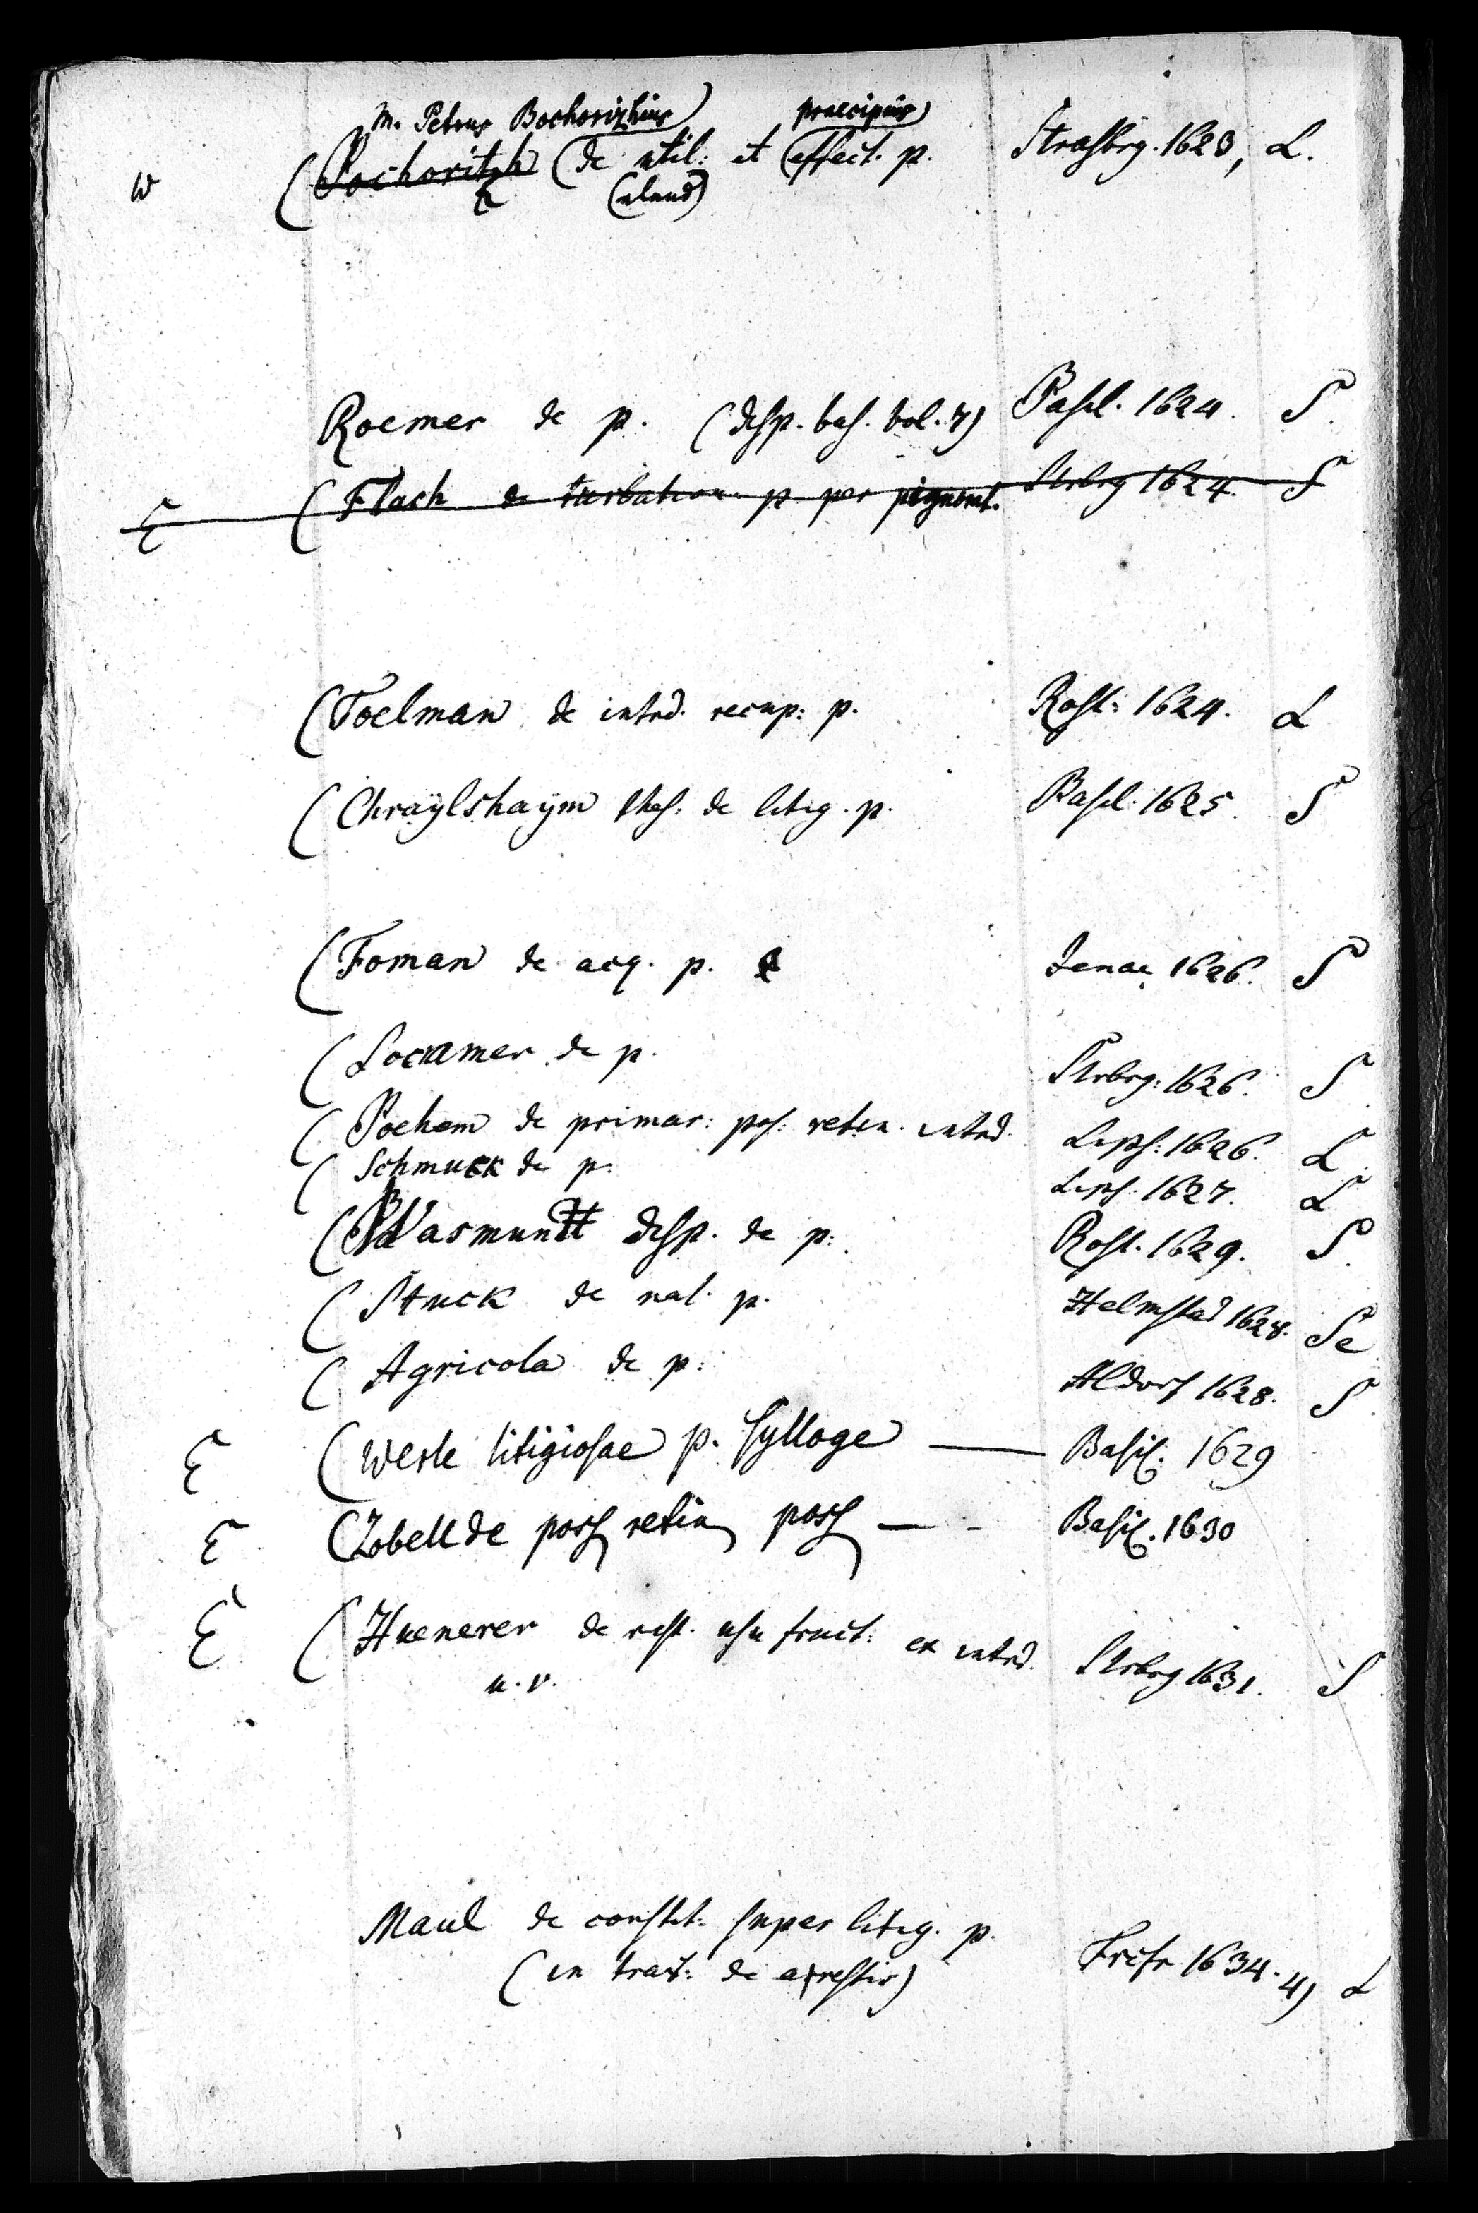 M. Petrus Bochorizhius) praecipuis)
w (Pochoritzh (de util: et (effect. p. Strasbrg. 1623, L.
(alans)
Roemer de p. (disp. bas. vol. 7) Basel. 1624. S
E (Flach de turbatione p. per pignorat. Strbrg 1624. S
(Toelman de intrd. recup: p. Rost: 1624. L
(Chraÿlshaÿm thes. de litig. p. Basel. 1625. S
(Foman de acq. p. Jenae 1626. S
(Locamer de p. Strbrg: 1626. S
(Poehem de primar: pos: retin. intrd. Lips: 1626. L
(Schmuck de p: Lips. 1627. L
(Wasmundt disp. de p: Rost. 1629. S
(Stuck de nat. p. Helmstad 1628. Se
(Agricola de p: Altdorf 1628. S
E (Werle litigiosae p. sylloge — Basil. 1629
E (Zobell de poss retin poss — - Basil. 1630
E (Huenerer de rest. usu fruct: ex intrd. Strbrg 1631. S
u. v.
Maul de constit: super litig. p.
(in tract: de arrestis) Frcfr 1634. 4) L